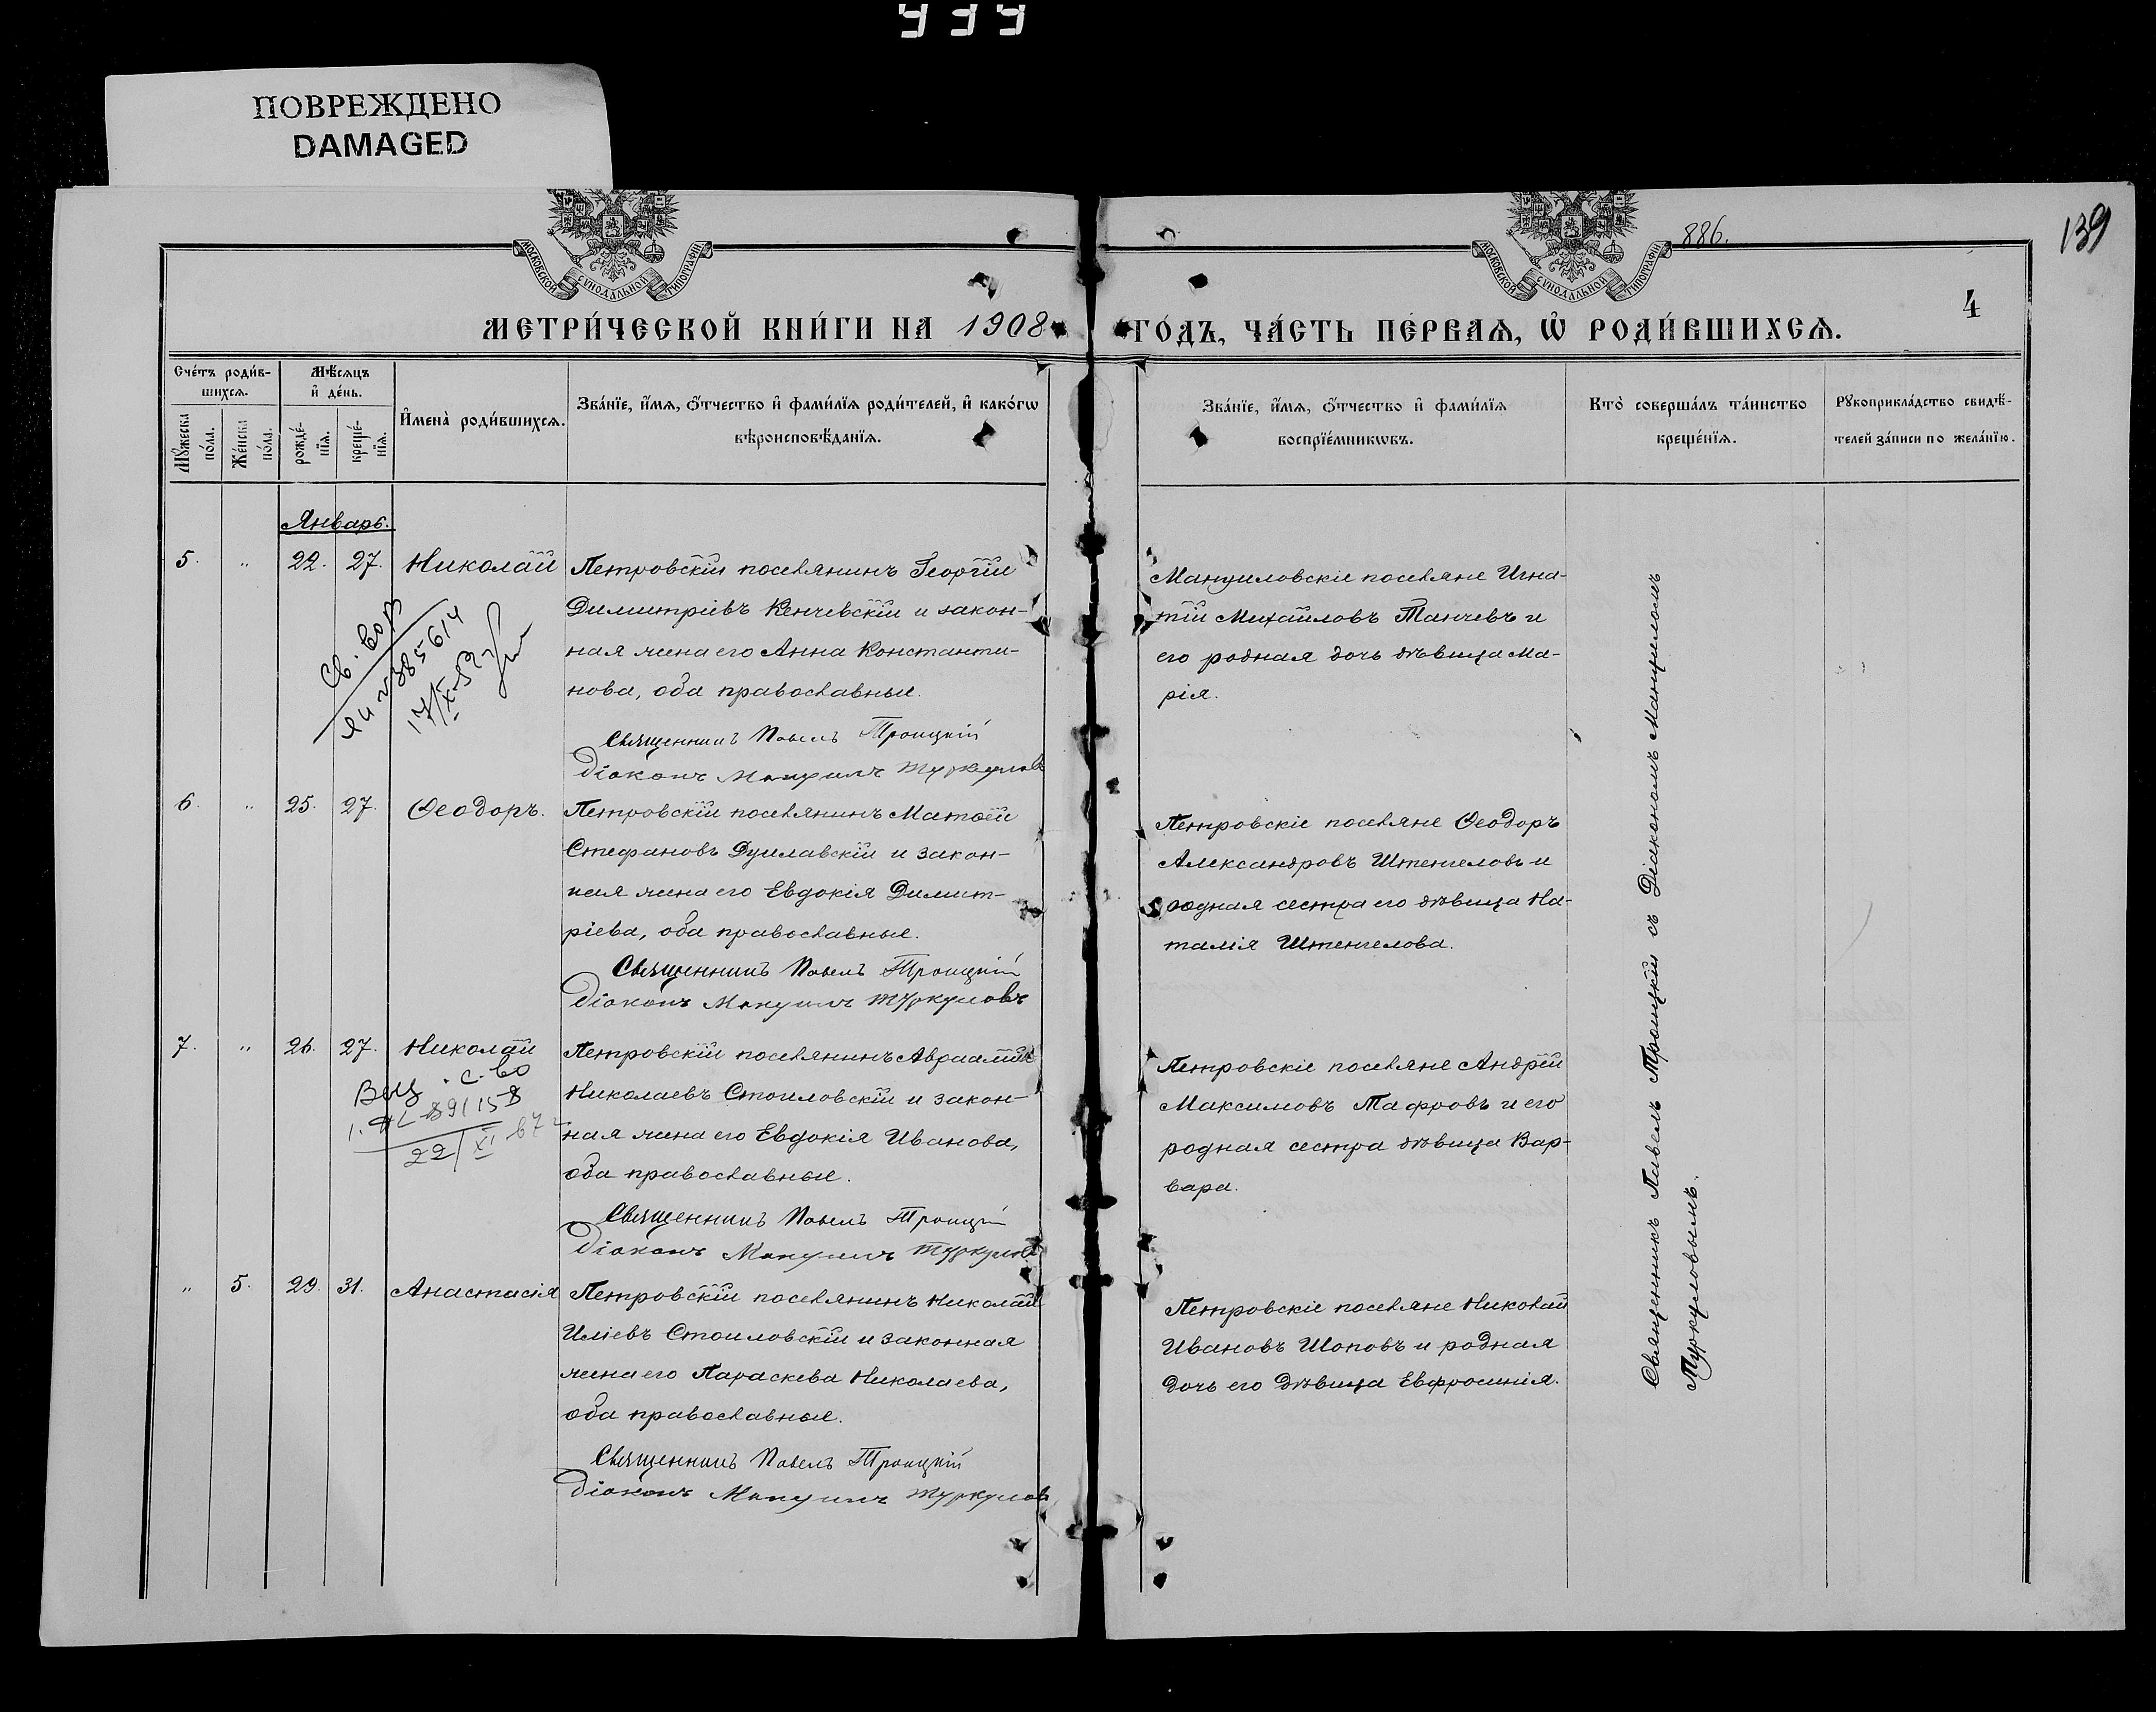 939
ПОВРЕЖДЕНО
DAMAGED
МОСКОВСКОЙ СУНОДАЛЬНОЙ ТИПОГРАФІИ
МОСКОВСКОЙ СУНОДАЛЬНОЙ ТИПОГРАФІИ
886.
139
4
МЕТРИ́ЧЕСКОЙ КНИ́ГИ НА 1908
ГО́ДЪ, ЧА́СТЬ ПЕ́РВАѦ, Ѡ҆ РОДИ́ВШИХСѦ.
Сче́тъ роди́в-
шихсѧ.
Мꙋжеска по́ла.
Же́нска по́ла.
Мѣ́сѧцъ
и҆ де́нь.
рожде́-
нїѧ.
креще́-
нїѧ.
И҆мена̀ роди́вшихсѧ.
Зва́нїе, и҆́мѧ, ѻ҆́тчество и҆ фами́лїѧ роди́телей, и҆ како́гѡ
вѣроисповѣ́данїѧ.
Зва́нїе, и҆́мѧ, ѻ҆́тчество и҆ фами́лїѧ
воспрїе́мникѡвъ.
Кто̀ соверша́лъ та́инство
креще́нїѧ.
Рꙋкоприкла́дство свидѣ́-
телей за́писи по жела́нїю.
Январь.
5. " 22. 27. Николай
Петровскій поселянинъ Георгій
Димитріевъ Кенчевскій и закон-
ная жена его Анна Константи-
нова, оба православные.
Священникъ Павелъ Троицкій
Діаконъ Мануилъ Туркуловъ
Мануиловскіе поселяне Игна-
тій Михайловъ Танчевъ и
его родная дочь дѣвица Ма-
рія.
Св.
385614
17/X-59
6. " 25. 27. Ѳеодоръ.
Петровскій поселянинъ Матѳей
Стефановъ Дуплавскій и закон-
ная жена его Евдокія Димит-
ріева, оба православные.
Священникъ Павелъ Троицкій
Діаконъ Мануилъ Туркуловъ
Петровскіе поселяне Ѳеодоръ
Александровъ Штенгеловъ и
родная сестра его дѣвица На-
талія Штенгелова.
7. " 26. 27. Николай
Петровскій поселянинъ Авраамій
Николаевъ Стоиловскій и закон-
ная жена его Евдокія Иванова,
оба православные.
Священникъ Павелъ Троицкій
Діаконъ Мануилъ Туркуловъ
Петровскіе поселяне Андрей
Максимовъ Тафровъ и его
родная сестра дѣвица Вар-
вара.
с-во
22/XI-67
" 5. 29. 31. Анастасія
Петровскій поселянинъ Николай
Иліевъ Стоиловскій и законная
жена его Параскева Николаева,
оба православные.
Священникъ Павелъ Троицкій
Діаконъ Мануилъ Туркуловъ
Петровскіе поселяне Николай
Ивановъ Шоповъ и родная
дочь его дѣвица Евфросинія.
Священникъ Павелъ Троицкій съ Діакономъ Мануиломъ
Туркуловымъ.